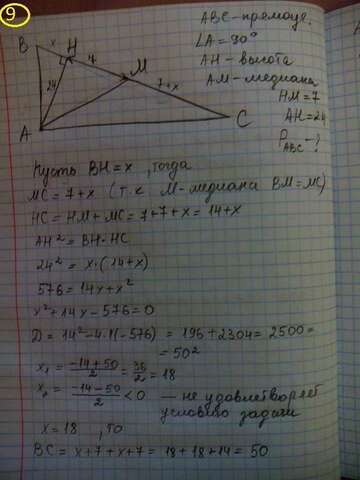 9
ABC - прямоуг.
∠A = 90°
AH - высота
AM - медиана
HM = 7
AH = 24
P_ABC - ?
B
x
H
7
M
24
7+x
A
C
Пусть BH = x, тогда
MC = 7 + x (т.к M - медиана BM = MC)
HC = HM + MC = 7 + 7 + x = 14 + x
AH² = BH · HC
24² = x · (14 + x)
576 = 14x + x²
x² + 14x - 576 = 0
D = 14² - 4·1(-576) = 196 + 2304 = 2500 =
= 50²
x₁ = (-14 + 50)/2 = 36/2 = 18
x₂ = (-14 - 50)/2 < 0 — не удовлетворяет
условию задачи
x = 18, то
BC = x + 7 + x + 7 = 18 + 18 + 14 = 50